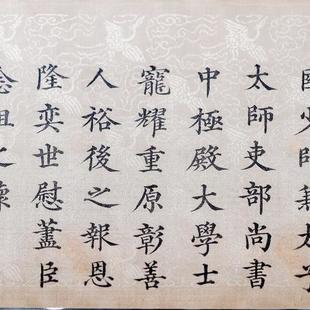 國少師兼太子
太師吏部尚書
中極殿大學士
寵耀重原彰善
人裕後之報恩
隆奕世慰藎臣
念祖之懷